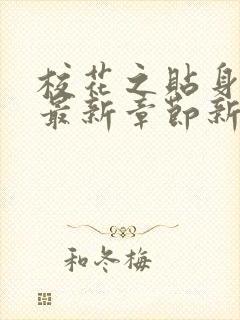 校花之贴身
最新章節新
和冬梅